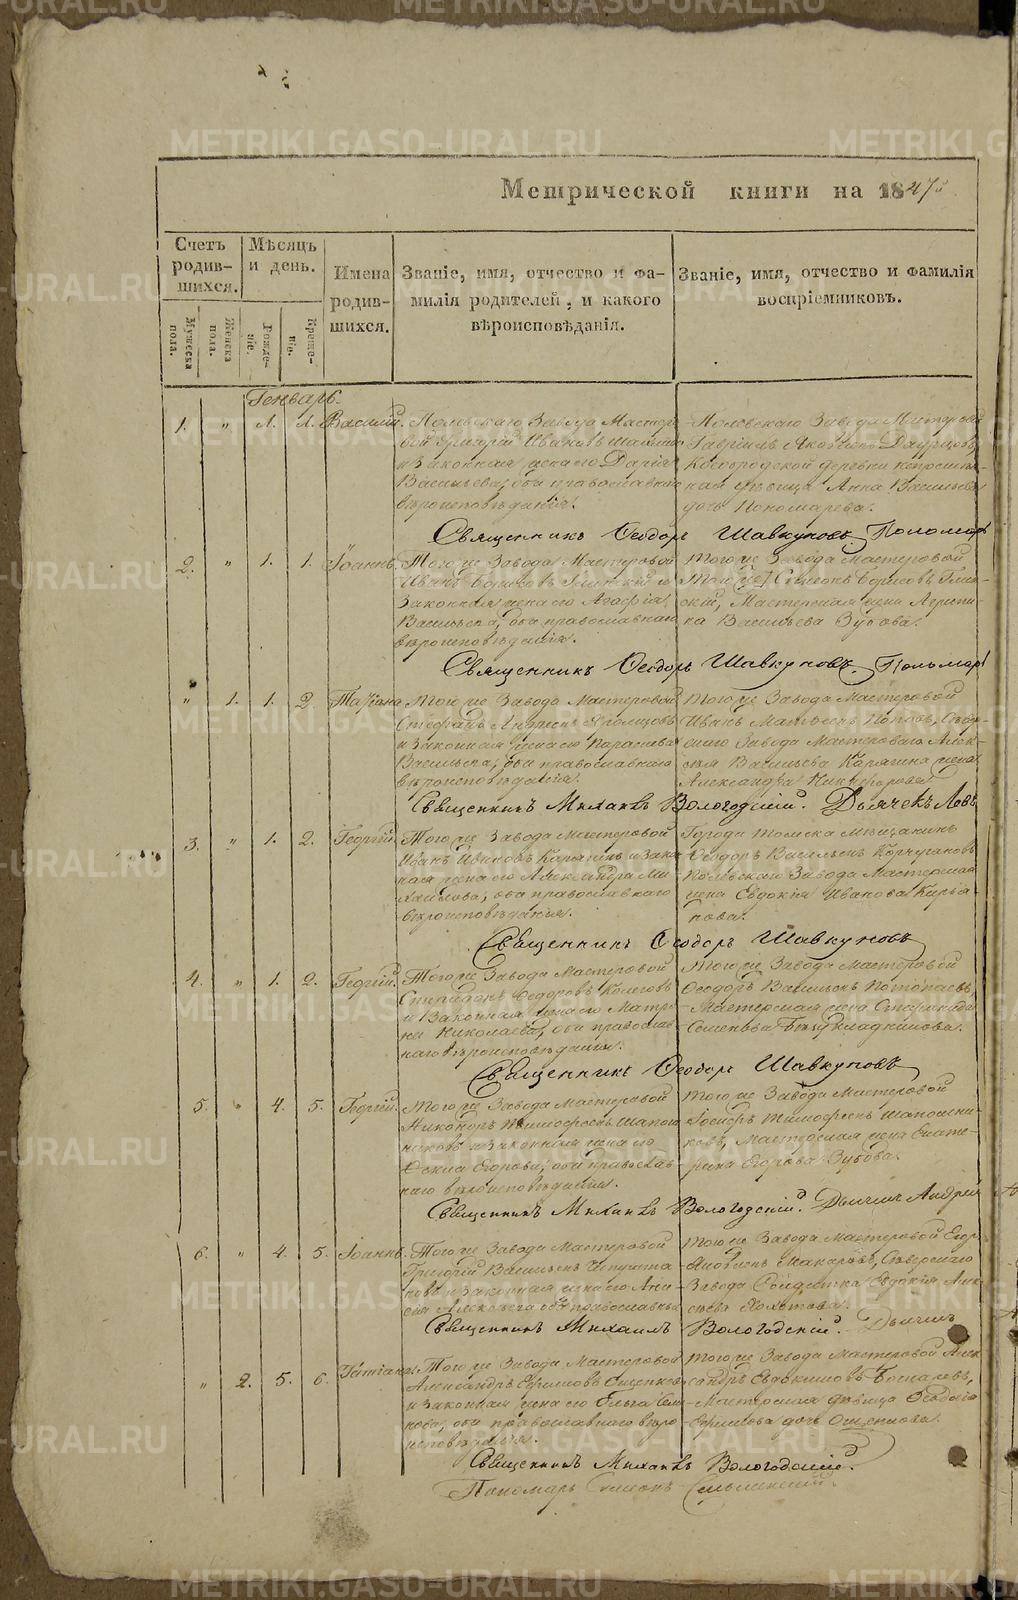 METRIKI.GASO-URAL.RU
Метрической книги на 1847
Счетъ родив-шихся.
Мѣсяцъ и день.
Имена родив-шихся.
Званіе, имя, отчество и фа-
милія родителей, и какого
вѣроисповѣданія.
Званіе, имя, отчество и фамилія
воспріемниковъ.
Мужеска пола.
Женска пола.
Рожде-ніе.
Креще-ніе.
Генварь.
1. " 1. 1. Василій.
Полевскаго Завода Мастеро-
вой Григорій Ивановъ
и законная жена его Дарія
Васильева, оба православнаго
вѣроисповѣданія.
Полевскаго Завода Мастеровой
Гавріилъ Яковлевъ
Косогородской деревни
дѣвица Анна Васильева
дочь Пономарева.
Священникъ Ѳеодоръ Шавкуновъ. Пономарь
2. " 1. 1. Іоаннъ.
Того же Завода Мастеровой
Иванъ Борисовъ
Законная жена его Агафія
Васильева, оба православнаго
вѣроисповѣданія.
Того же Завода Мастеровой
Симеонъ Борисовъ
Мастерская жена Агрипи-
на Васильева Зубова.
Священникъ Ѳеодоръ Шавкуновъ. Пономарь
" 1. 1. 2 Татіана
Того же Завода Мастеровой
Стефанъ Андреевъ
и законная жена его Параскева
Васильева, оба православнаго
вѣроисповѣданія.
Того же Завода Мастеровой
Иванъ Матвеевъ Поповъ, Сѣвер-
скаго Завода Мастероваго Алек-
сѣя Васильева Карягина жена
Александра Никифорова.
Священникъ Михаилъ Вологодскій. Дьячекъ Левъ
3. " 1. 2. Георгій.
Того же Завода Мастеровой
Иванъ Ивановъ Карягинъ и зако-
ная жена его Александра Ми-
хаилова, оба православнаго
вѣроисповѣданія.
Города Томска Мѣщанинъ
Ѳеодоръ Васильевъ Корчугановъ
Полевскаго Завода Мастерская
жена Евдокія Иванова Карья-
нова.
Священникъ Ѳеодоръ Шавкуновъ
4. " 1. 2. Георгій.
Того же Завода Мастеровой
Спиридонъ Ѳедоровъ
и Законная жена его Матре-
на Николаева, оба православ-
наго вѣроисповѣданія.
Того же Завода Мастеровой
Ѳеодоръ Васильевъ Потопаевъ
Мастерская жена Стефанида
Семенова
Священникъ Ѳеодоръ Шавкуновъ
5. " 4. 5. Георгій.
Того же Завода Мастеровой
Никоноръ Тимофеевъ Шапош-
никовъ и законная жена его
Егорова, оба православ-
наго вѣроисповѣданія.
Того же Завода Мастеровой
Тимофеевъ Шапошни-
ковъ, Мастерская жена Екате-
рина Егорова Зубова.
Священникъ Михаилъ Вологодскій. Дьячекъ Андрей
6. " 4. 5. Іоаннъ.
Того же Завода Мастеровой
Григорій Васильевъ Чепушта-
новъ и законная жена его Ани-
сія Алексѣева оба православнаго
Того же Завода Мастеровой Егоръ
Яковлевъ Макаровъ, Сѣверскаго
Завода Солдатка Евдокія Алек-
сѣева
Священникъ Михаилъ Вологодскій. Дьячекъ
" 2. 5. 6. Татіана.
Того же Завода Мастеровой
Александръ Ефимовъ Ощепковъ
и законная жена его Ольга Семе-
нова, оба православнаго вѣро-
исповѣданія.
Того же Завода Мастеровой Алек-
сандръ Евдокимовъ
Мастерская дѣвица Ѳеодосія
Ефимова дочь Ощепкова.
Священникъ Михаилъ Вологодскій.
Пономарь Симеонъ Смоленскій.